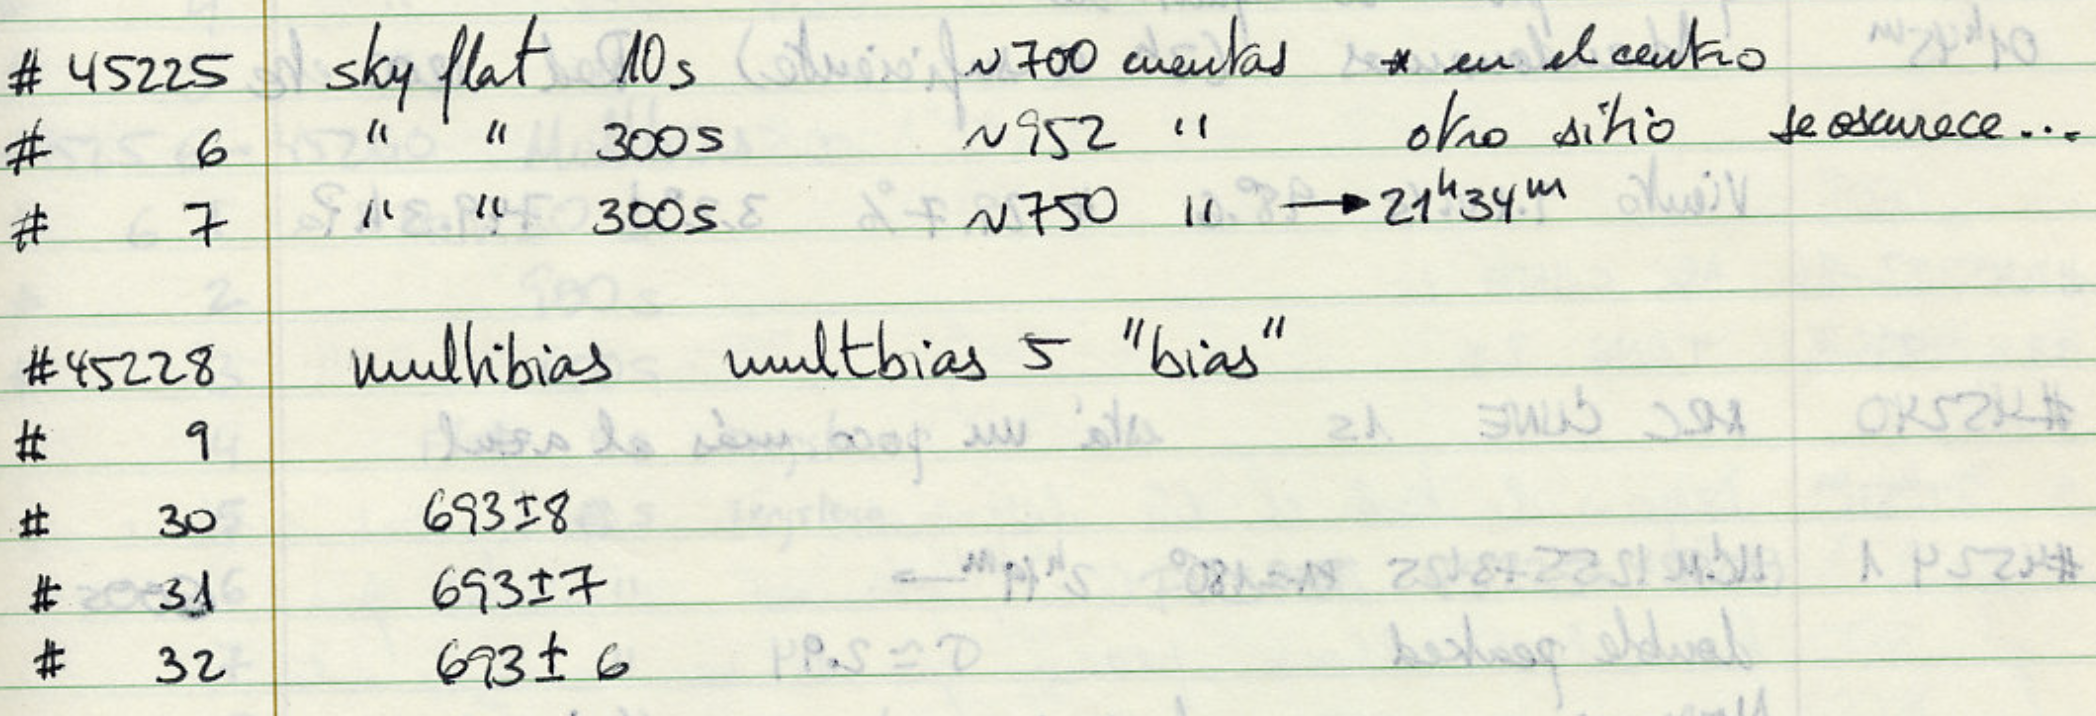 # 45225 sky flat 10s ~700 cuentas * en el centro
# 6 " " 300s ~952 " otro sitio se oscurece...
# 7 " " 300s ~750 " → 21ʰ34ᵐ
#45228 multibias multbias 5 "bias"
# 9
# 30 693±8
# 31 693±7
# 32 693± 6